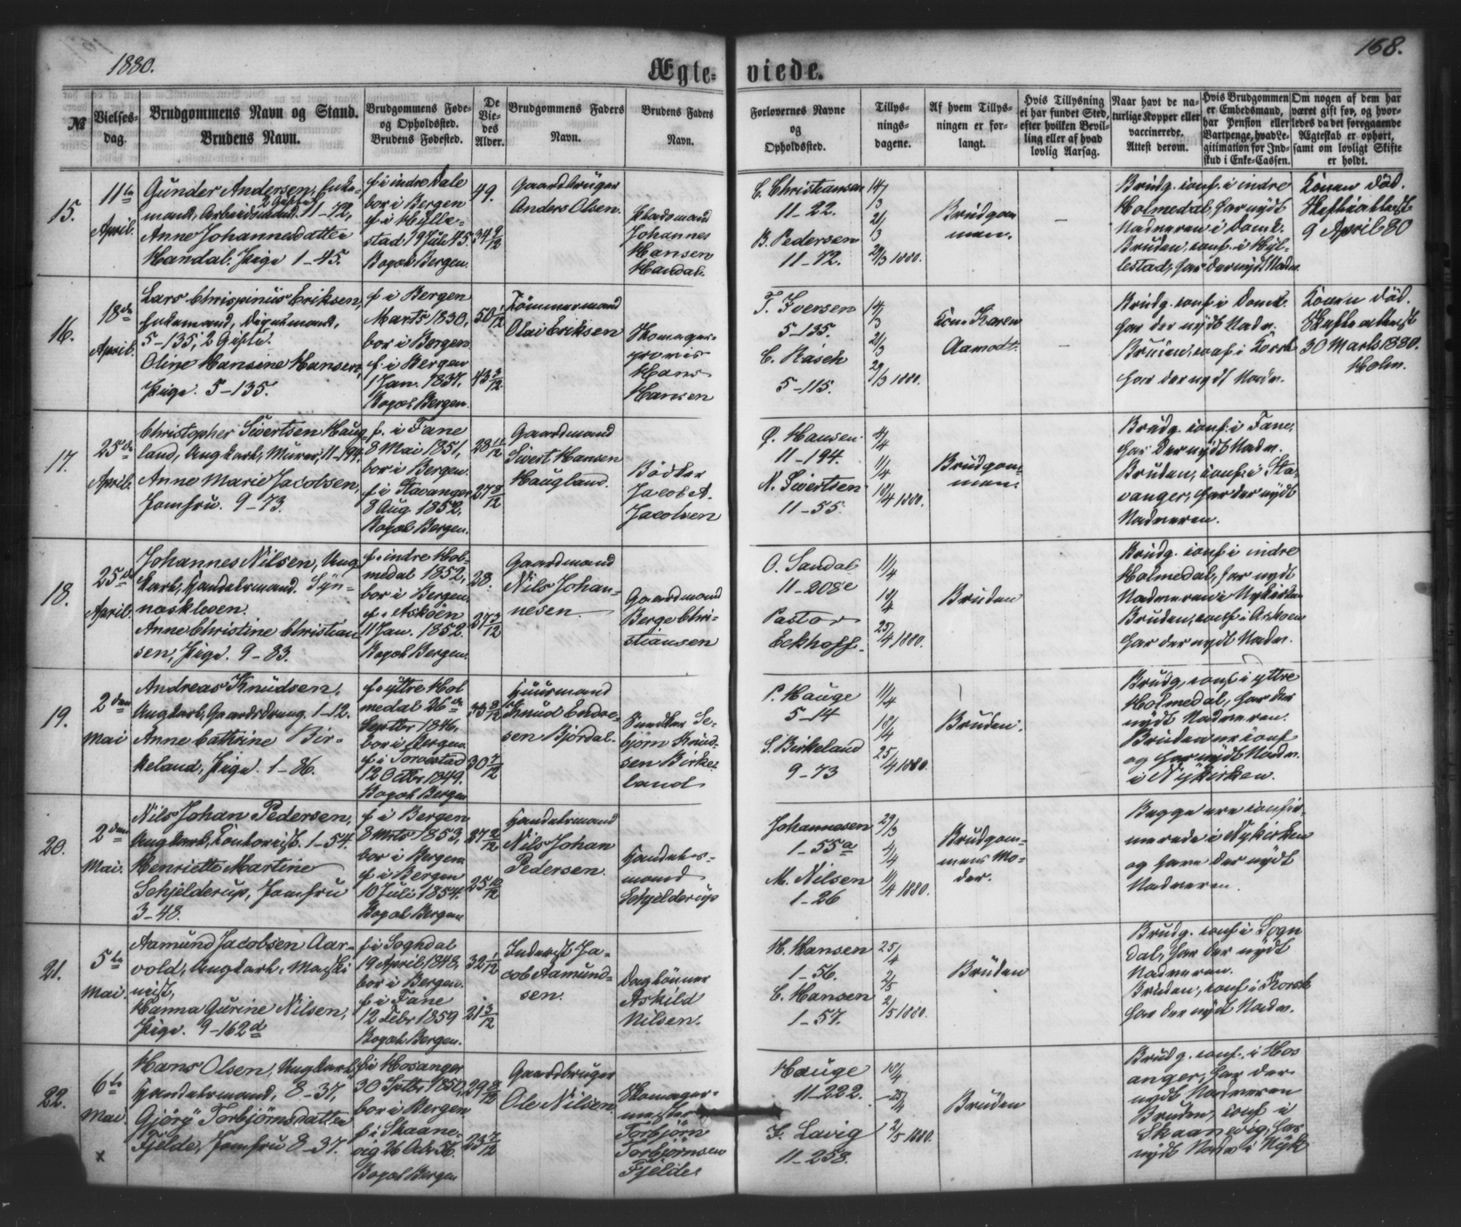 1880.
168.
Ægte-
viede.
№
Vielses-
dag.
Brudgommens Navn og Stand.
Brudens Navn.
Brudgommens Føde-
og Opholdssted.
Brudens Fødested.
De
Vie-
des
Alder.
Brudgommens Faders
Navn.
Brudens Faders
Navn.
Forlovernes Navne
og
Opholdssted.
Tillys-
nings-
dagene.
Af hvem Tillys-
ningen er for-
langt.
Hvis Tillysning
ei har fundet Sted,
efter hvilken Bevil-
ling eller af hvad
lovlig Aarsag.
Naar havt de na-
turlige Kopper eller
vaccinerede.
Attest derom.
Hvis Brudgommen
er Embedsmand,
har Pension eller
Vartpenge, hvad Le-
gitimation for Ind-
skud i Enke-Cassen.
Om nogen af dem har
været gift før, og hvor-
ledes da det foregaaende
Ægteskab er ophørt,
samt om lovligt Skifte
er holdt.
15.
11te
April.
Gunder Andersen, Enke-
mand, Arbeidsmand. 11-72,
2 Gifte
Anne Johannesdatter
Handal. Pige 1-45.
f. i indre Dale
bor i Bergen
f. i
stad 19 Juli 45
Bopæl Bergen.
49.
34
Gaardbruger
Anders Olsen.
Johannes
Hansen
Handal.
C. Christiansen
11-22.
B. Pedersen
11-72.
14/3
21/3
1880.
Brudgom-
men.
–
Brudg. conf. i indre
Holmedal, har nydt
Nadveren i Domk.
Bruden conf. i
har der nydt Nadv.
Konen død.
Skifteattest
9 April 80
16.
18de
April.
Lars Chrispinus Eriksen,
Enkemand,
5-135, 2 Gifte.
Oline Hansine Hansen,
Pige. 5-135.
f. i Bergen
Marts 1830,
bor i Bergen
f. i Bergen
1 Jan. 1837.
Bopæl Bergen.
50 1/12
43 3/12
Tømmermand
Olai Eriksen
Skomager-
Hans
Hansen
T. Iversen
5-135.
C. Rasch
5-115.
14/3
21/3
29/3 1880.
Karen
Aamodt.
Brudg. conf. i Domk.
har der nydt Nadv.
Bruden, conf. i Korsk
har der nydt Nadv.
Konen død.
Skifteattest
30 Marts 1880.
Holm.
17.
25de
April.
Christopher Sivertsen Haug-
land, Ungkarl, Murer, 11-194.
Anne Marie Jacobsen,
Jomfru. 9-73.
f. i Fane
8 Mai 1851,
bor i Bergen.
f. i Stavanger
8 Aug 1852.
Bopæl Bergen.
28 11/12
27 8/12
Gaardmand
Sivert Hansen
Haugland.
Bødker
Jacob A.
Jacobsen
Hansen
11-194.
N. Sivertsen
11-55.
4/4
11/4
18/4 1880.
Brudgom-
men.
Brudg. conf. i Fane,
har der nydt Nadv.
Bruden, conf. i Sta-
vanger, har der nydt
Nadveren.
18.
25de
April.
Johannes Nilsen, Ung-
karl, Handelsmand. Syn-
neskleven.
Anne Christine Christian-
sen, Pige. 9-83.
f. indre Hol-
medal 1852,
bor i Bergen
f. Askøen
11 Jan. 1852.
Bopæl Bergen.
28.
27 3/12
Gaardmand
Nils Johan-
nesen
Gaardmand
Berge Chri-
stiansen
O. Sandal
11-208e
Pastor
Eckhoff.
11/4
18/4
25/4 1880.
Bruden
Brudg. conf. i indre
Holmedal, har nydt
Nadveren i Nykirken
Bruden, conf. i Askøen
har der nydt Nadv.
19.
2den
Mai
Andreas Knudsen,
Ungkarl, Gaardsdreng. 1-12.
Anne Cathrine Bir-
keland, Pige. 1-86.
f. ytre Hol-
medal 26de
Septbr 1846,
bor i Bergen
f. i Torvestad
12 Octbr 1849.
Bopæl Bergen
33 8/12
30 7/12
Huusmand
Knud Endre-
sen Bjørdal.
Se-
bjørn Knud-
sen Birke-
land
P. Hauge
5-14
S. Birkeland
9-73
11/4
18/4
25/4 1880.
Bruden.
Brudg. conf. i yttre
Holmedal, har der
nydt Nadveren.
Bruden er conf.
og har nydt Nadv.
i Nykirken.
20.
2den
Mai.
Nils Johan Pedersen,
Ungkarl, Contorist. 1-54.
Henriette Martine
Schjelderup, Jomfru
3-48.
f. i Bergen
8 Mrts 1853,
bor i Bergen
f. i Bergen
10 Juli 1854.
Bopæl Bergen
27 2/12
25 10/12
Handelsmand
Nils Johan
Pedersen.
Handels-
mand
Schjelderup
Johannesen
1-55a
M. Nilsen
1-26
29/3
4/4
11/4 1880.
Brudgom-
mens Mo-
der.
Begge ere confir-
merede i Nykirken
og have der nydt
Nadveren.
21.
5te
Mai.
Aamund Jacobsen Aar-
vold, Ungkarl, Maski-
nist,
Hanna Gurine Nilsen,
Pige. 9-162d
f. i Soghdal
19 April 1848,
bor i Bergen.
f. i Fane
12 Febr 1859
Bopæl Bergen.
32 1/12
21 3/12
Inderst Ja-
cob Aamund-
sen.
Daglønner
Askild
Nilsen.
H. Hansen
1-56.
C. Hansen
1-57.
25/4
2/5
2/5 1880.
Bruden
Brudg. conf. i Sogn-
dal, har der nydt
Nadveren.
Bruden, conf. i Korsk
har der nydt Nadv.
22.
6te
Mai
Hans Olsen, Ungkarl,
Handelsmand, 8-37,
Gjørø Torbjørnsdatter
Fjelde, Jomfru 8-37.
x
f. i Hosanger
30 Septbr 1850,
bor i Bergen
f. i Skaane-
vig 26 56.
Bopæl Bergen
29 8/12
23 7/12
Gaardbruger
Ole Nilsen.
Skomager-
mester
Torbjørn
Torbjørnsen
Fjelde
Hauge
11-222.
Lavig
11-258.
18/4
25/4
2/5 1880.
Bruden
Brudg. conf. i Hos-
anger, har der
nydt Nadveren
Bruden, conf. i
Skaanevig, har
nydt Nadv. i Nyk